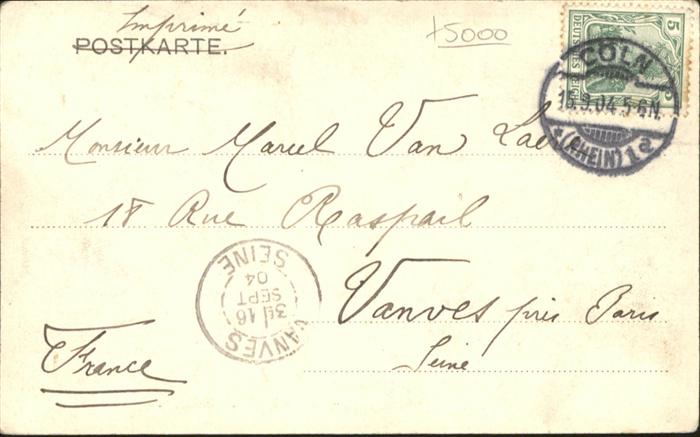 Imprimé
POSTKARTE.
+5000
5
DEUTSCHES REICH
CÖLN
15.9.04.5-6N.
*(RHEIN)1a
Monsieur Marcel Van
18 Rue Raspail
Vanves près Paris
Seine
France
VANVES
16
SEPT
04
SEINE